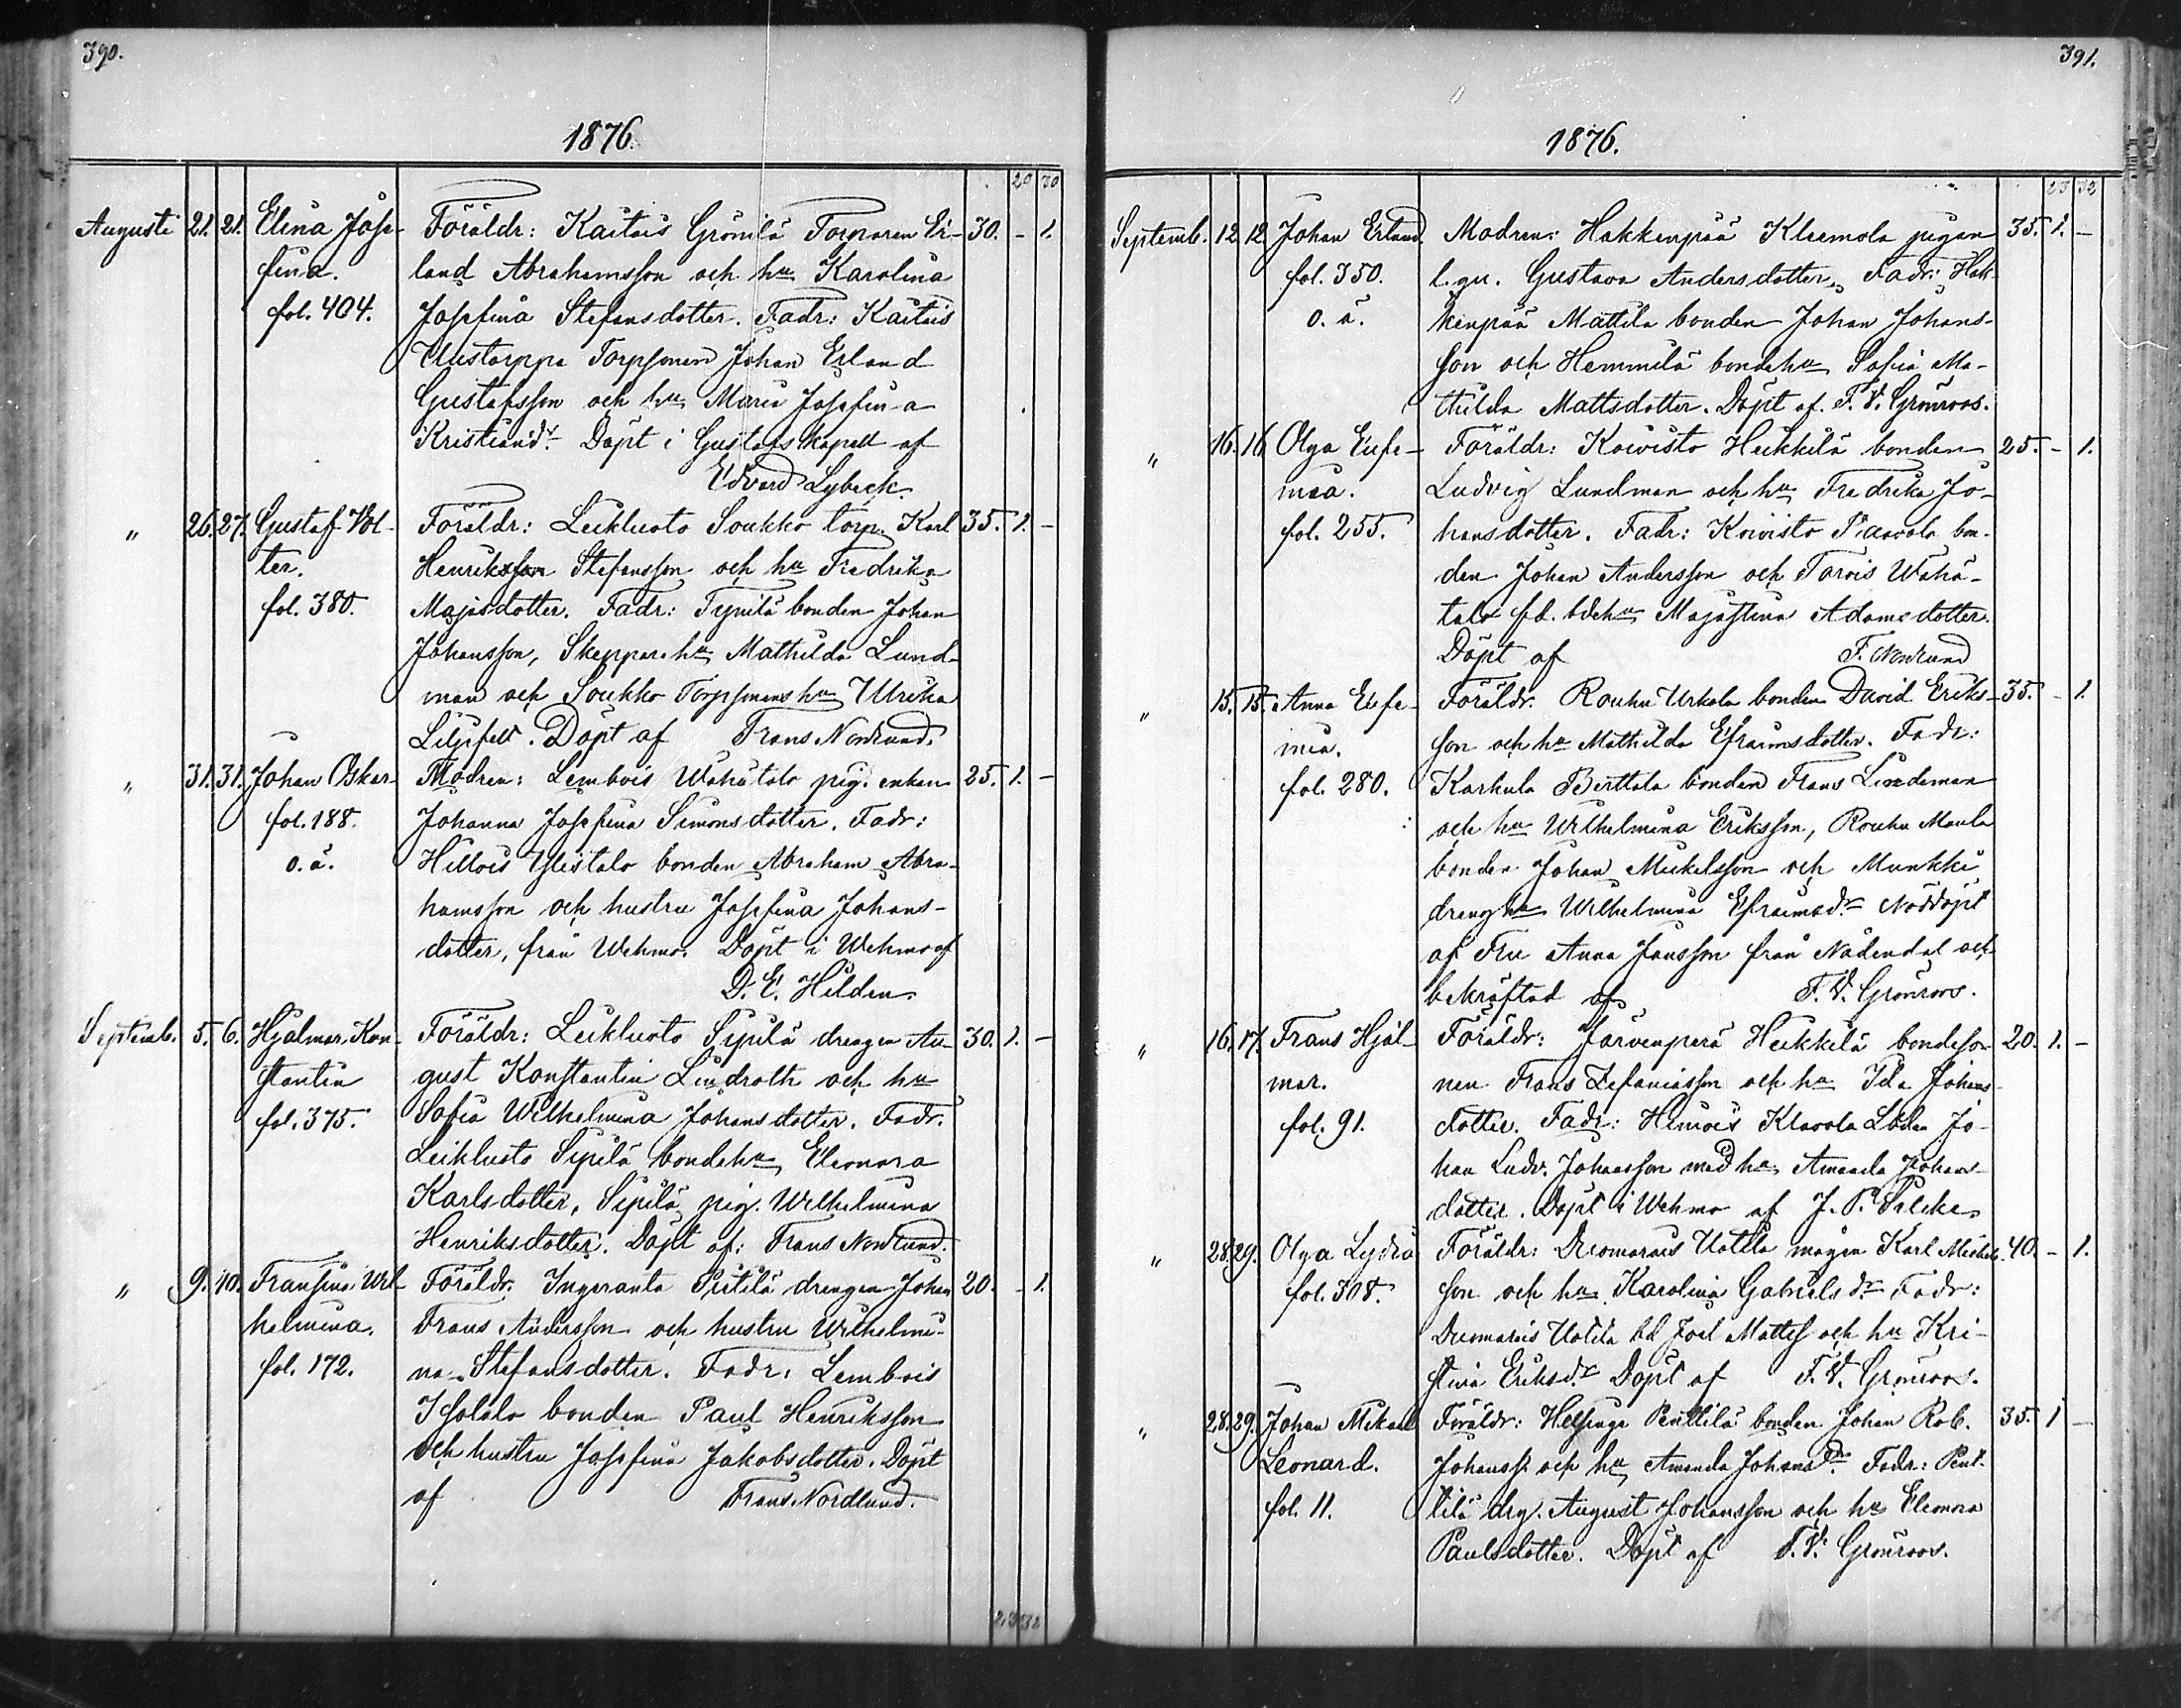 390.
1876.
20 30
Augusti 21. 21. Elina Jose- Föräldr: Kaitais Grönilä Torparen Er- 30. - 1.
fina. land Abrahamsson och hu Karolina
fol. 404. Josefina Stefansdotter. Fadr: Kaitais
Torpsonen Johan Erland
Gustafsson och hu Maria Josefin-a
Kristiansdr Döpt i Gustafs Kapell af
Edvard Lybeck.
" 26. 27. Gustaf Wol- Föräldr: Leikluoto Soukko torp. Karl 35. 1. -
ter. Henriksson Stefansson och hu Fredrika
fol. 380. Majasdotter. Fadr: Tynilä bonden Johan
Johansson, Skepparehu Mathilda Lund-
man och Soukko Torpsonens hu Ulrika
Liljefelt. Döpt af Frans Nordlund.
" 31. 31. Johan Oskar Modren: Lembois Wähätalo pig. enkan 25. 1. -
fol. 188. Johanna Josefina Simonsdotter. Fadr:
o. ä. Hillois Ylistalo bonden Abraham Abra-
hamsson och hustru Josefina Johans-
dotter, från Wehmo. Döpt i Wehmo af
D. E. Hilden.
Septemb. 5. 6. Hjalmar Kon- Föräldr: Leikluoto Sipilä drengen Au- 30. 1. -
stantin gust Konstantin Lindroth och hu
fol. 375. Sofia Wilhelmina Johansdotter. Fadr.
Leikluoto Sipilä bondehu Eleonora
Karlsdotter, Sipilä pig. Wilhelmina
Henriksdotter. Döpt af: Frans Nordlund.
" 9. 10. Fransina Wil- Föräldr. Ingeranta Pietilä drengen Johan 20. - 1.
helmina. Frans Andersson och hustru Wilhelmi-
fol. 172. na Stefansdotter. Fadr: Lembois
Isotalo bonden Paul Henriksson
och hustru Josefina Jakobsdotter. Döpt
af Frans Nordlund.
23 32
391.
1876.
23 32
Septemb. 12. 12. Johan Erland Modren: Hakkenpää Kleemola pigan 35. 1. -
fol. 350. l. qu. Gustava Andersdotter, Fadr: Hak-
o. ä. kenpää Mattila bonden Johan Johans-
son och Hemmilä bondehu Sofia Ma-
thilda Mattsdotter. Döpt af F. W. Grönroos.
" 16. 16. Olga Eufe- Föräldr: Koivisto Heikkilä bonden 25. - 1.
mia. Ludvig Lundman och hu Fredrika Jo-
fol. 255. hansdotter. Fadr: Koivisto Paavola bon-
den Johan Andersson och Taivois Wähä-
talo fd. bdehu Majastina Adamsdotter.
Döpt af F. Nordlund
" 15. 15. Anna Eufe- Föräldr. Rouhu Urkola bonden David Eriks- 35. - 1.
mia. son och hu Mathilda Efraimsdotter. Fadr:
fol. 280. Karhula Berttala bonden Frans Lindeman
och hu Wilhelmina Eriksson, Rouhu Maula
bonden Johan Mickelsson och Munkki
dreng hu Wilhelmina Efraimsdr Nöddöpt
af Fru Anna Jansson från Nådendal och
bekräftad af F. W. Grönroos.
" 16. 17. Frans Hjal- Föräldr: Järvenperä Heikkilä bondeso- 20. 1. -
mar. nen Frans Zefaniasson och hu Ida Johans-
fol. 91. dotter. Fadr: Himois Klavola Lbden Jo-
han Ludv. Johansson med hu Amanda Johans-
dotter. Döpt i Wehmo af J. P.
" 28. 29. Olga Lydia Föräldr: Duomarais Uotila mågen Karl Mickels- 40. - 1.
fol. 308. son och hu Karolina Gabrielsdr. Fadr:
Duomarais Uotila bd Joel Mattss. och hu Kri-
stina Eriksdr. Döpt af F. W. Grönroos.
" 28. 29. Johan Mikael Föräldr: Helsinge Penttilä bonden Johan Rob. 35. 1 -
Leonard. Johanss. och hu Amanda Johansdr. Fadr: Pent-
fol. 11. tilä drg. August Johansson och hu Eleonora
Paulsdotter. Döpt af F. W. Grönroos.